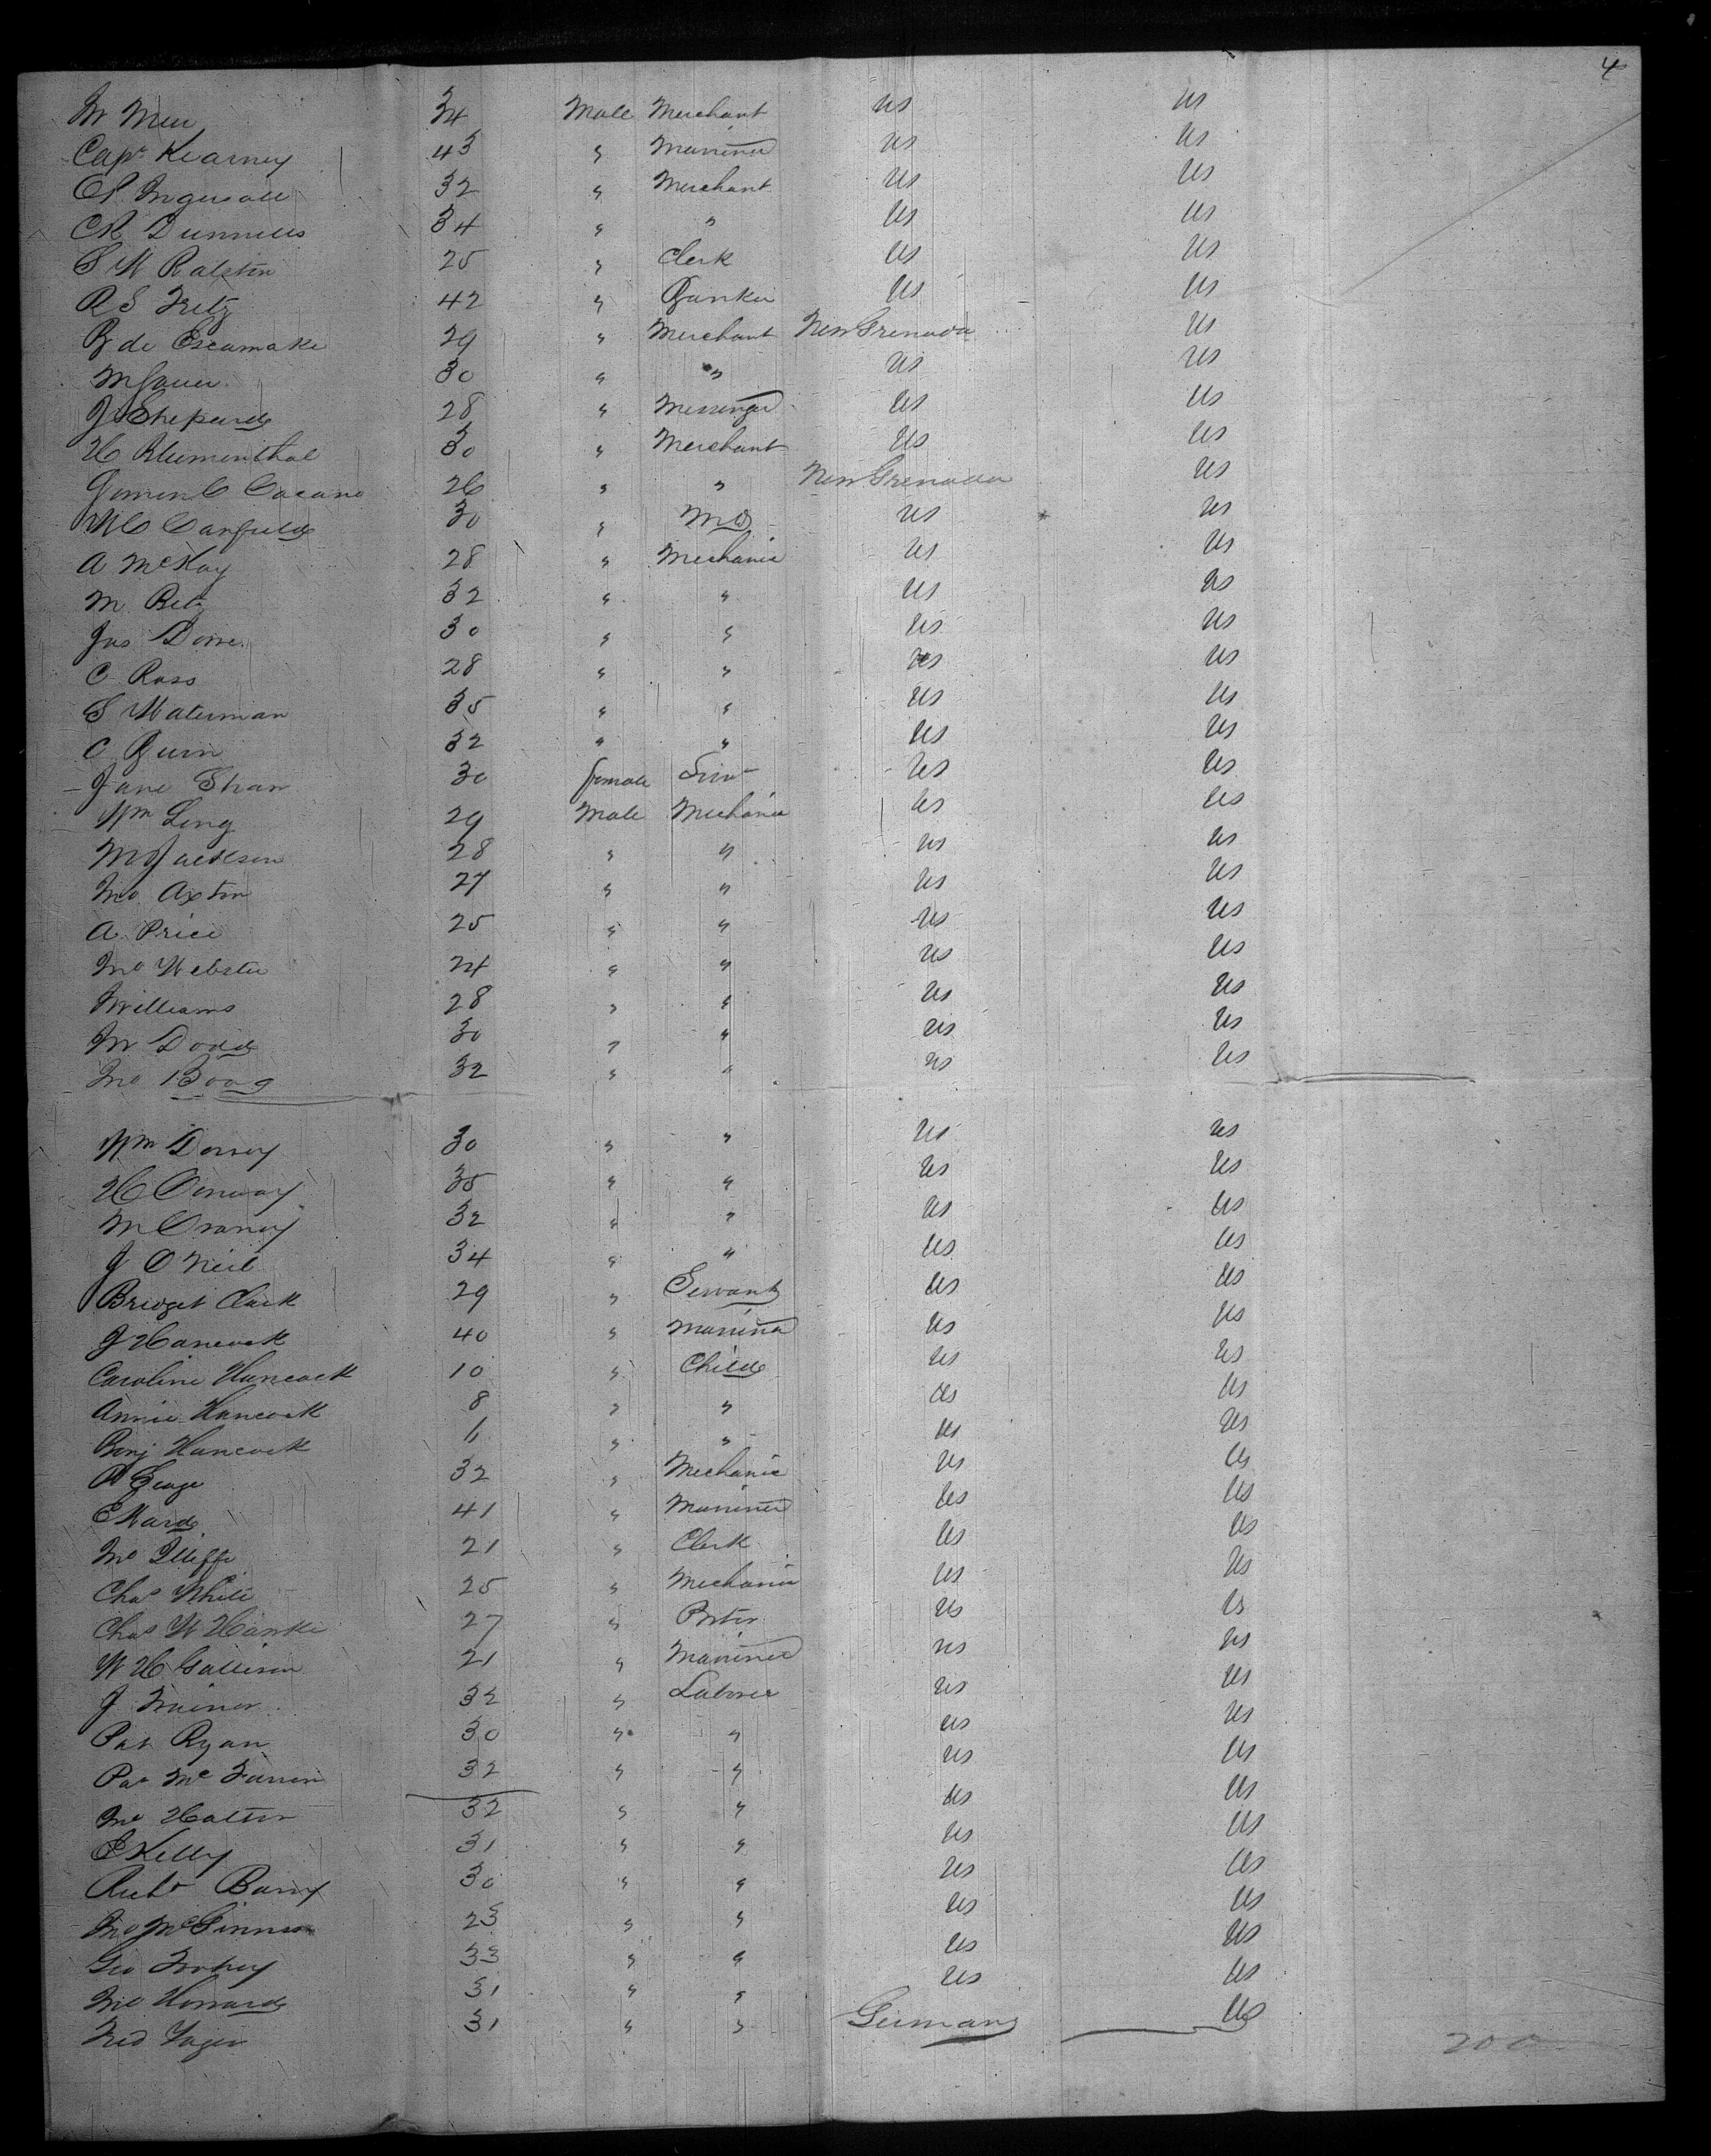 4
W Meu 34 Male Merchant US US
Capt Kearney 43 " Mariner US US
CP Ingersoll 32 " Merchant US US
CR Dunnells 34 " " US US
S W Ralston 25 " Clerk US US
R S Fretz 42 " Banker US US
B de Escamake 29 " Merchant New Grenada US
M 30 " " US US
J Shepard 28 " Messenger US US
H Blumenthal 30 " Merchant US US
C 26 " " New Grenada US
W C Canfield 30 " MD US US
A McKay 28 " Mechanic US US
M Betz 32 " " US US
Jas Dome 30 " " US US
C Ross 28 " " US US
S Waterman 35 " " US US
C Burn 32 " " US US
Jane Shaw 30 female Servt US US
Wm Long 29 Male Mechanic US US
M Jackson 28 " " US US
Jno Axton 27 " " US US
A Price 25 " " US US
Jno Webster 24 " " US US
Williams 28 " " US US
W Dodd 30 " " US US
Jno Boag 32 " " US US
Wm Dorsey 30 " " US US
H Conway 35 " " US US
M Craney 32 " " US US
J O Neil 34 " " US US
Bridget Clark 29 " Servant US US
J Hancock 40 " Mariner US US
Caroline Hancock 10 " Child US US
Annie Hancock 8 " " US US
Benj Hancock 6 " " US US
R Gage 32 " Mechanic US US
E Ward 41 " Mariner US US
Jno Iliffe 21 " Clerk US US
Chas White 25 " Mechanic US US
Chas W Hawke 27 " Porter US US
W H Gallison 21 " Mariner US US
J Trainor 32 " Laborer US US
Pat Ryan 30 " " US US
Pat Mc Farren 32 " " US US
Jno Hatton 32 " " US US
E Kelly 31 " " US US
Richd Barry 30 " " US US
Jno McGinnis 23 " " US US
Geo Torhey 33 " " US US
Jno Howard 31 " " US US
Fred Yager 31 " " Germany US
200